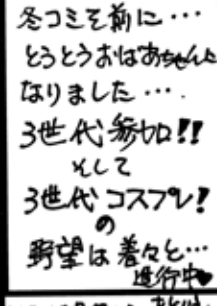 冬コミを前に…
とうとうおばあちゃんに
なりました….
3世代参加!!
そして
3世代コスプレ!
の
野望は着々と…
進行中♥